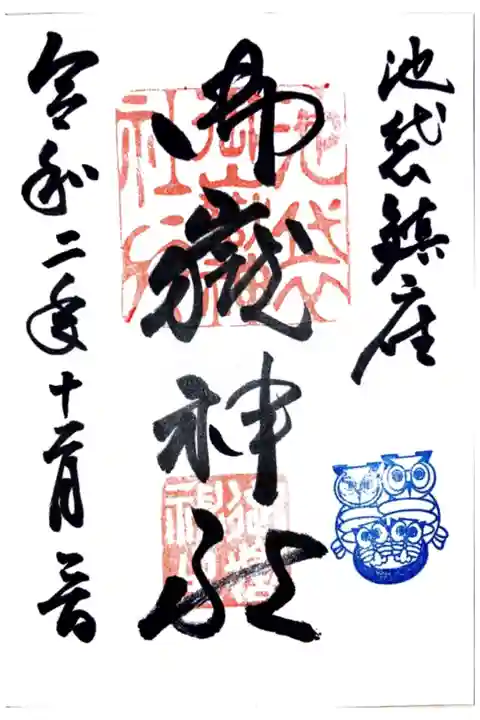 池袋鎮座
御嶽神社
令和二年十二月二日